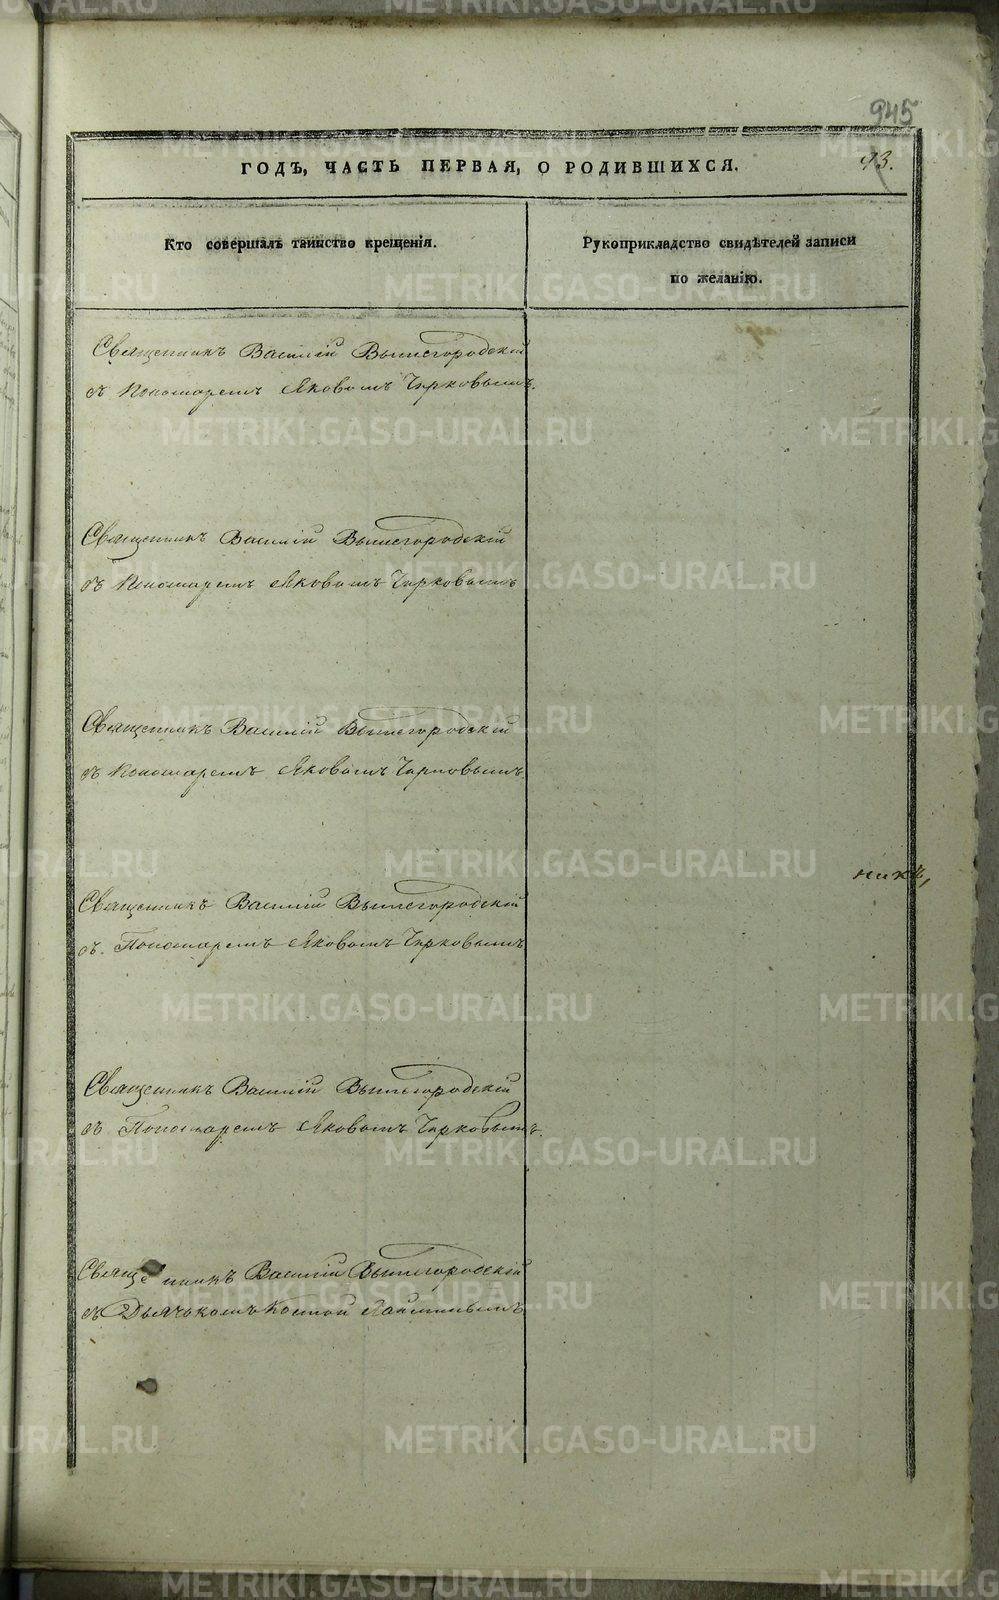 945
93.
ГОДЪ, ЧАСТЬ ПЕРВАЯ, О РОДИВШИХСЯ.
Кто совершалъ таинство крещенія.
Рукоприкладство свидѣтелей записи
по желанію.
Священникъ Василій Вышегородскій
съ Пономаремъ Яковомъ Чирковымъ.
Священникъ Василій Вышегородскій
съ Пономаремъ Яковомъ Чирковымъ
Священникъ Василій Вышегородскій
съ Пономаремъ Яковомъ Чирковымъ.
никъ,
Священникъ Василій Вышегородскій
съ. Пономаремъ Яковомъ Чирковымъ
Священникъ Василій Вышегородскій
съ Пономаремъ Яковомъ Чирковымъ.
Священникъ Василій Вышегородскій
съ Дьячкомъ
METRIKI.GASO-URAL.RU